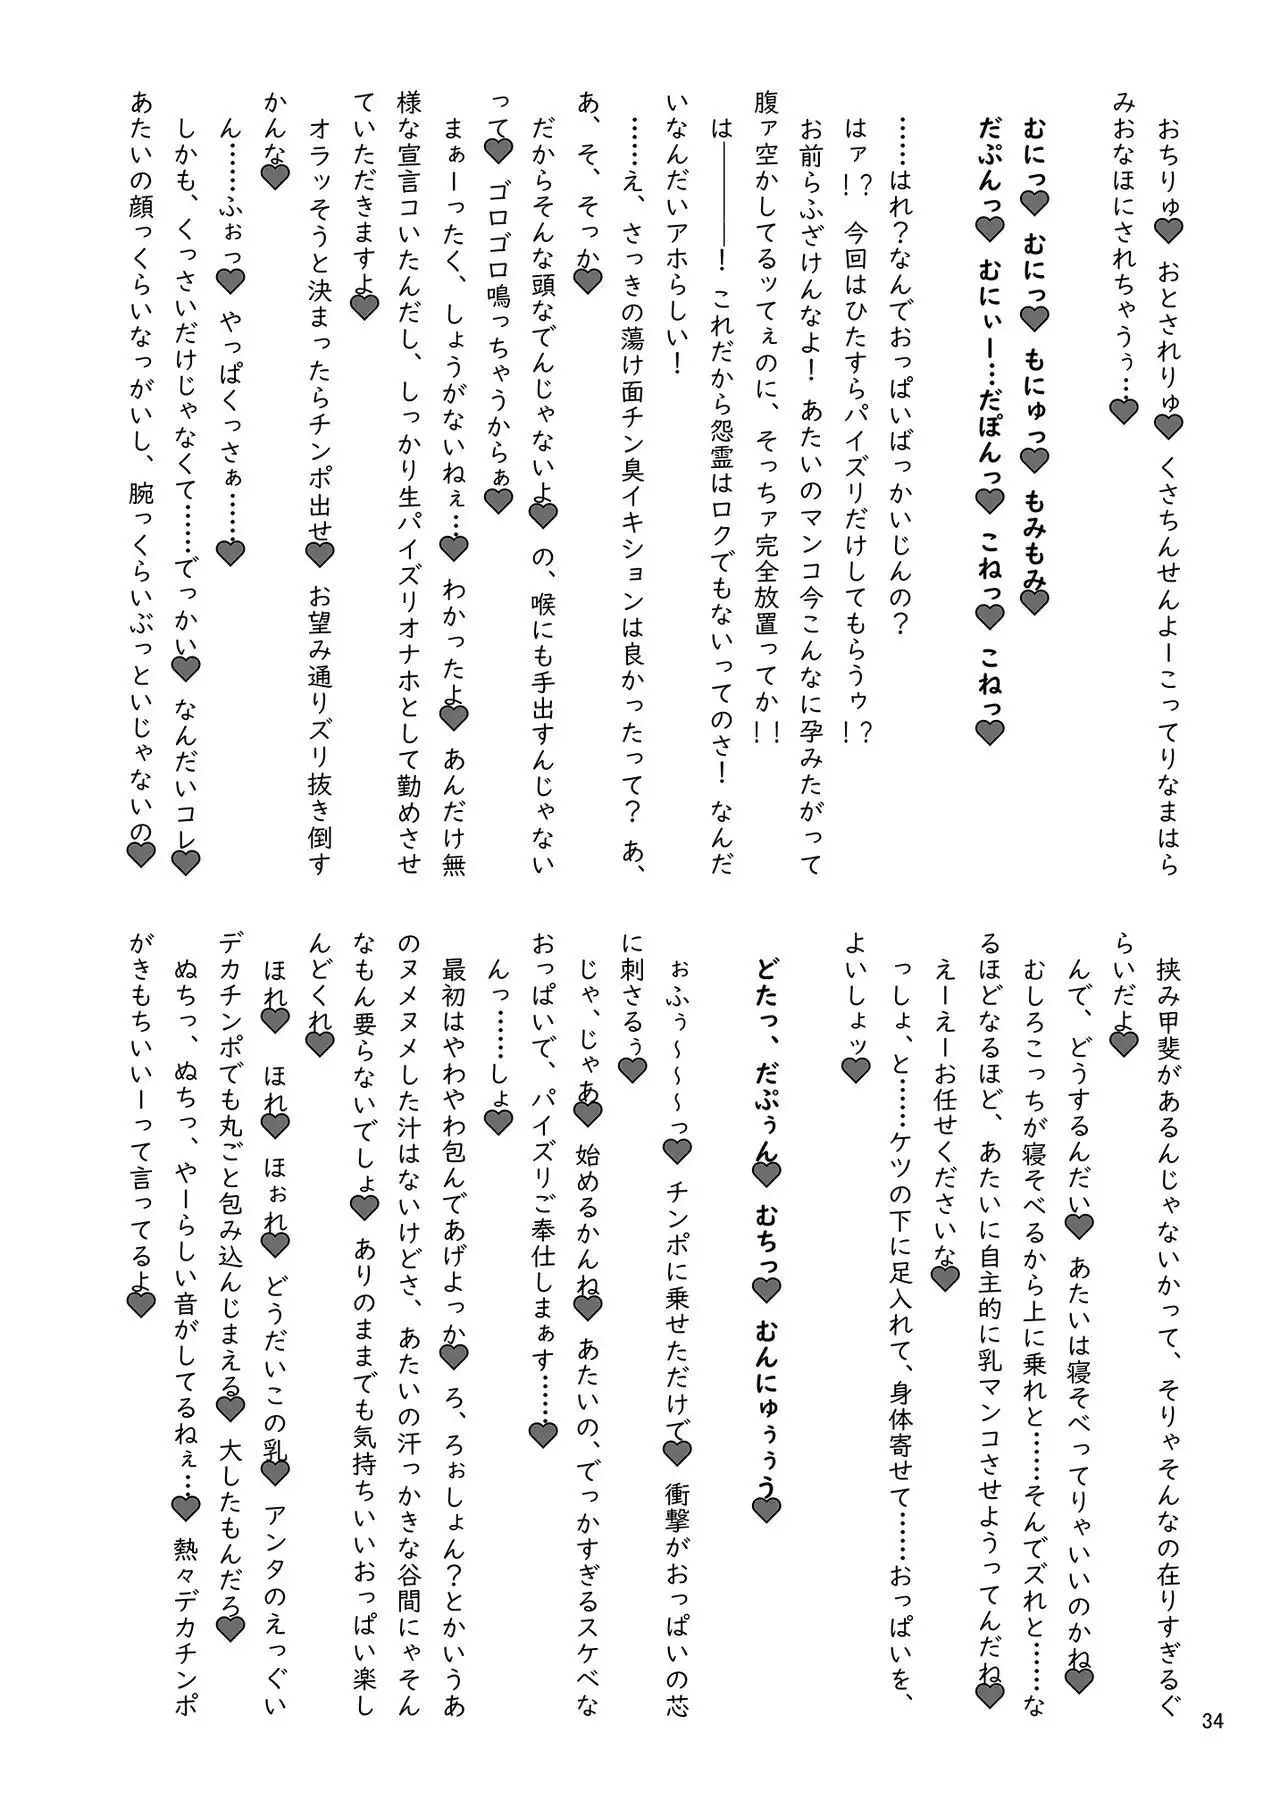 おちりゅ♥ おとされりゅ♥ くさちんせんよーこってりなまはら
みおなほにされちゃうぅ…♥
むにっ♥ むにっ♥ もにゅっ♥ もみもみ♥
だぷんっ♥ むにぃー…だぽんっ♥ こねっ♥ こねっ♥
……はれ？なんでおっぱいばっかいじんの？
はァ！？ 今回はひたすらパイズリだけしてもらうゥ！？
お前らふざけんなよ！ あたいのマンコ今こんなに孕みたがって
腹ァ空かしてるッてぇのに、そっちァ完全放置ってか！！
は————！ これだから怨霊はロクでもないってのさ！ なんだ
いなんだいアホらしい！
……え、さっきの蕩け面チン臭イキションは良かったって？ あ、
あ、そ、そっか♥
だからそんな頭なでんじゃないよ♥ の、喉にも手出すんじゃない
って♥ ゴロゴロ鳴っちゃうからぁ♥
まぁーったく、しょうがないねぇ…♥ わかったよ♥ あんだけ無
様な宣言コいたんだし、しっかり生パイズリオナホとして勤めさせ
ていただきますよ♥
オラッそうと決まったらチンポ出せ♥ お望み通りズリ抜き倒す
かんな♥
ん……ふぉっ♥ やっぱくっさぁ……♥
しかも、くっさいだけじゃなくて……でっかい♥ なんだいコレ♥
あたいの顔っくらいなっがいし、腕っくらいぶっといじゃないの♥
挟み甲斐があるんじゃないかって、そりゃそんなの在りすぎるぐ
らいだよ♥
んで、どうするんだい♥ あたいは寝そべってりゃいいのかね♥
むしろこっちが寝そべるから上に乗れと……そんでズれと……な
るほどなるほど、あたいに自主的に乳マンコさせようってんだね♥
えーえーお任せくださいな♥
っしょ、と……ケツの下に足入れて、身体寄せて……おっぱいを、
よいしょッ♥
どたっ、だぷぅん♥ むちっ♥ むんにゅぅぅう♥
ぉふぅ～～～っ♥ チンポに乗せただけで♥ 衝撃がおっぱいの芯
に刺さるぅ♥
じゃ、じゃあ♥ 始めるかんね♥ あたいの、でっかすぎるスケベな
おっぱいで、パイズリご奉仕しまぁす……♥
んっ……しょ♥
最初はやわやわ包んであげよっか♥ ろ、ろぉしょん？とかいうあ
のヌメヌメした汁はないけどさ、あたいの汗っかきな谷間にゃそん
なもん要らないでしょ♥ ありのままでも気持ちいいおっぱい楽し
んどくれ♥
ほれ♥ ほれ♥ ほぉれ♥ どうだいこの乳♥ アンタのえっぐい
デカチンポでも丸ごと包み込んじまえる♥ 大したもんだろ♥
ぬちっ、ぬちっ、やーらしい音がしてるねぇ…♥ 熱々デカチンポ
がきもちいいーって言ってるよ♥
34